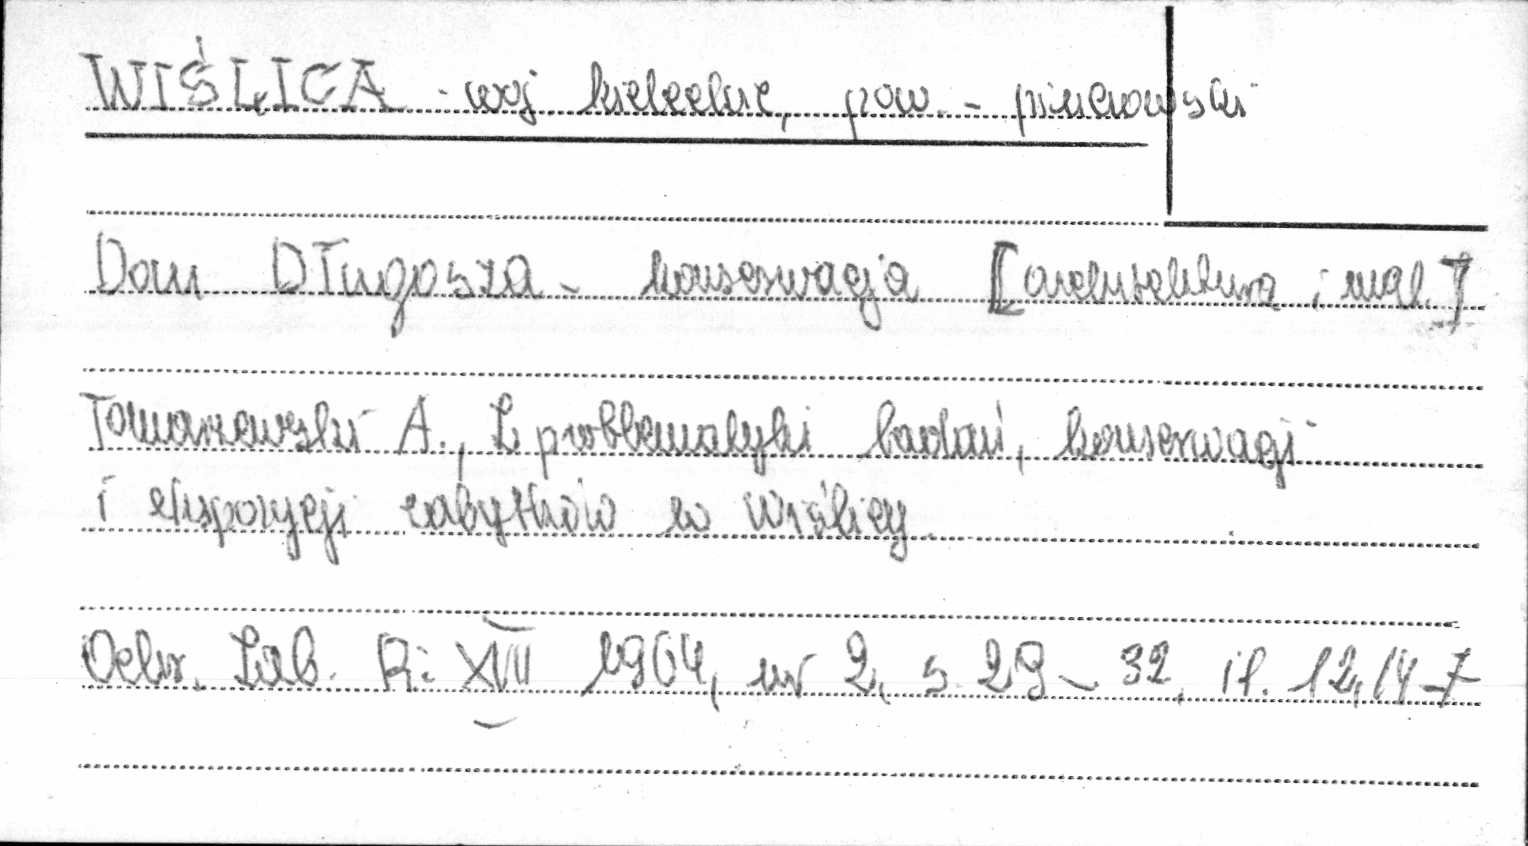 WIŚLICA - woj kieleckie, pow. - pińczowski
Dom Długosza - konserwacja [architektura i mal.]
Tomaszewski A., Z problematyki badań, konserwacji
i ekspozycji zabytków w Wiślicy.
Ochr. Zab. R: XVII 1964, nr 2, s. 29-32, il. 12, 14-7